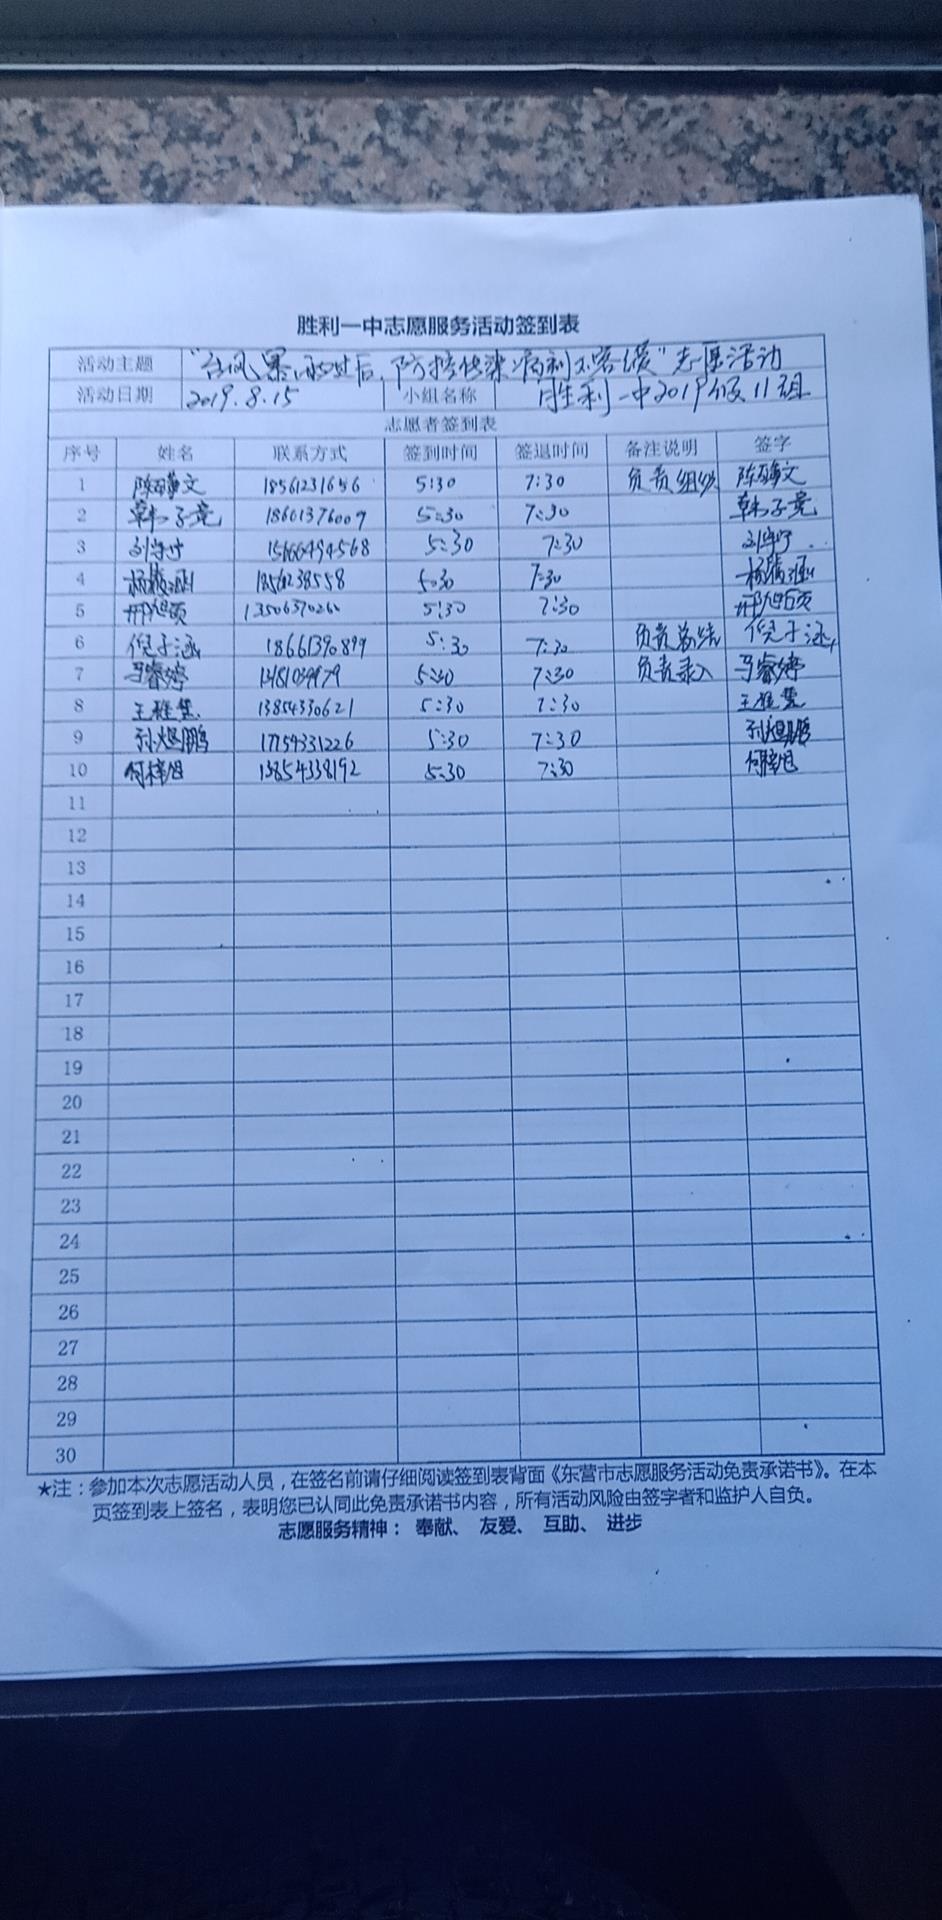 胜利一中志愿服务活动签到表
活动主题 "台风暴雨过后，防控传染病刻不容缓"志愿活动
活动日期 2019.8.15 小组名称 胜利一中2019级11组
志愿者签到表
序号 姓名 联系方式 签到时间 签退时间 备注说明 签字
1 陈 文 18561231656 5:30 7:30 负责组织 陈 文
2 韩子竞 18601376009 5:30 7:30 韩子竞
3 刘宇宁 15166494568 5:30 7:30 刘宇宁
4 杨 涵 5:30 7:30 杨 涵
5 邢旭硕 13506370260 5:30 7:30 邢旭硕
6 倪子涵 18661390899 5:30 7:30 负责总结 倪子涵
7 马睿婷 5:30 7:30 负责录入 马睿婷
8 王雅慧 13854330621 5:30 7:30 王雅慧
9 孙煜鹏 17754331226 5:30 7:30 孙煜鹏
10 何梓旭 13854338192 5:30 7:30 何梓旭
11
12
13
14
15
16
17
18
19
20
21
22
23
24
25
26
27
28
29
30
★注：参加本次志愿活动人员，在签名前请仔细阅读签到表背面《东营市志愿服务活动免责承诺书》。在本
页签到表上签名，表明您已认同此免责承诺书内容，所有活动风险由签字者和监护人自负。
志愿服务精神： 奉献、 友爱、 互助、 进步